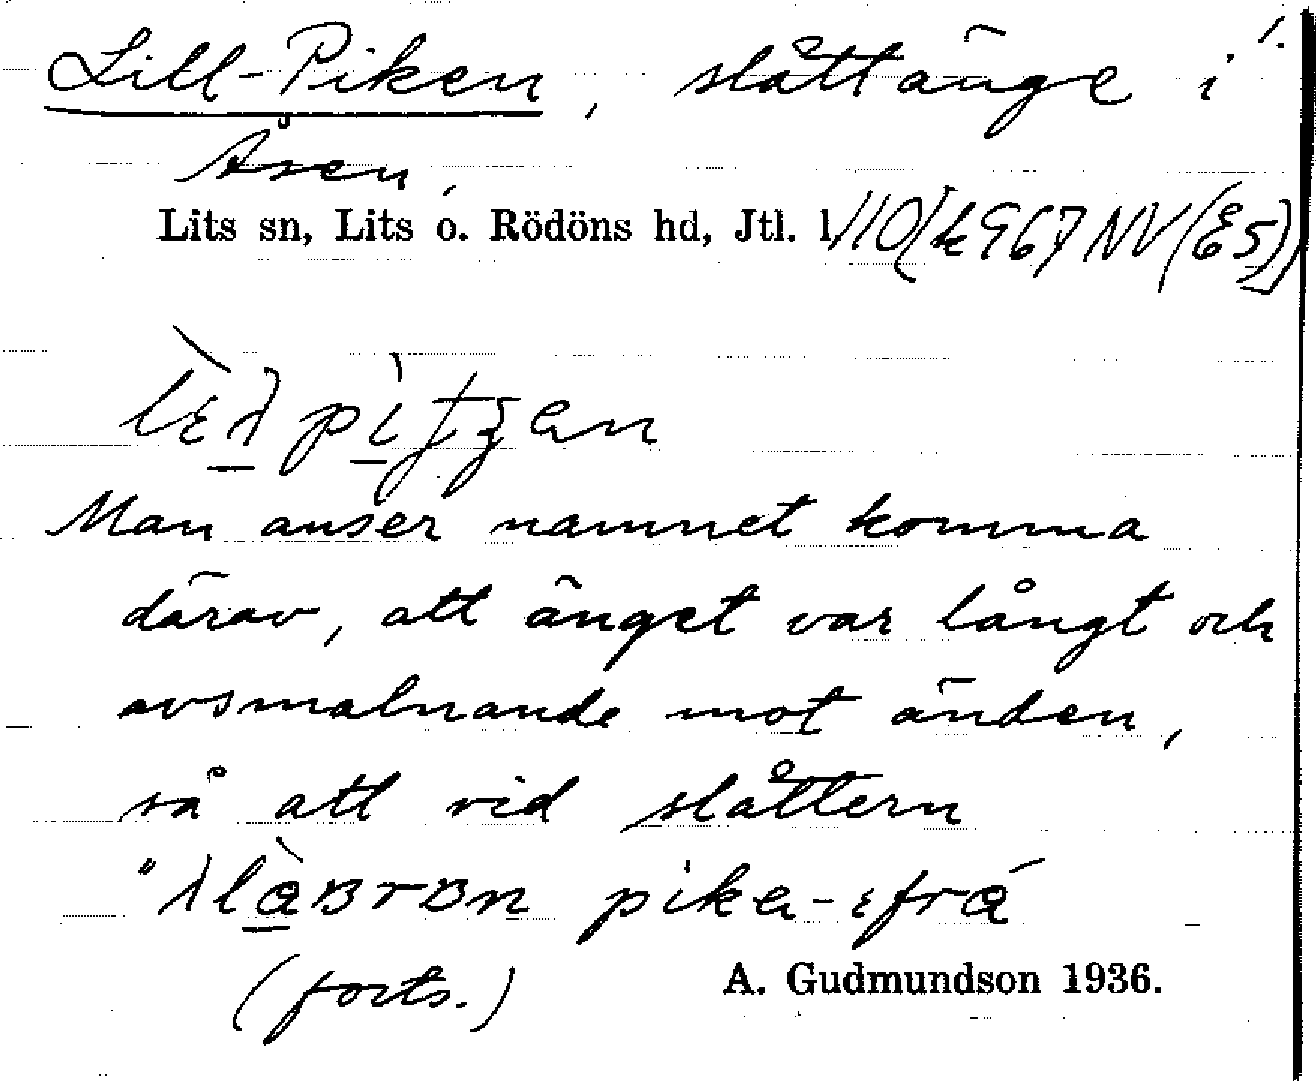 1.
Lill-Piken, slåttänge i
Åsen,
Lits sn, Lits o. Rödöns hd, Jtl. l.
Man anser namnet komma
därav, att änget var långt och
avsmalnande mot änden,
så att vid slåttern
pika-
(forts.)
A. Gudmundson 1936.